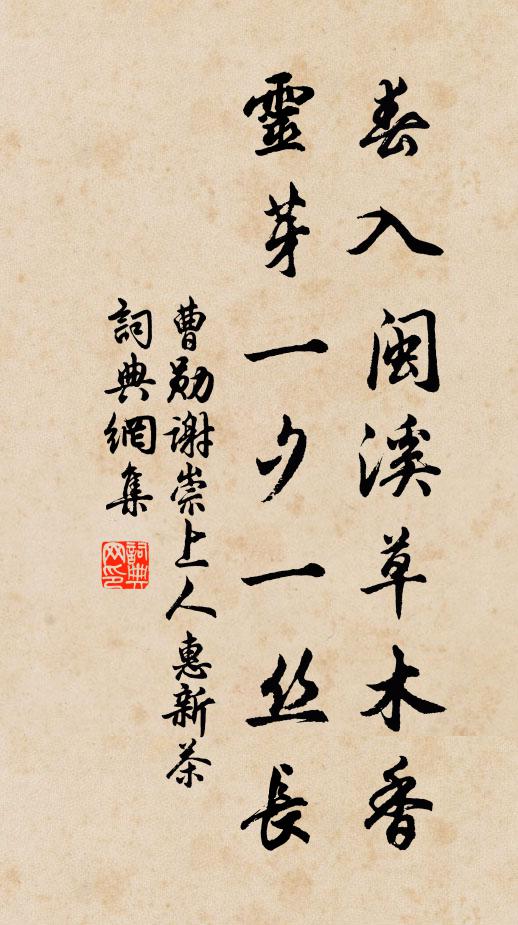 春入闽溪草木香
靈芽一夕一丝長
曹勋谢崇上人惠新茶
詞典網集
詞典网印